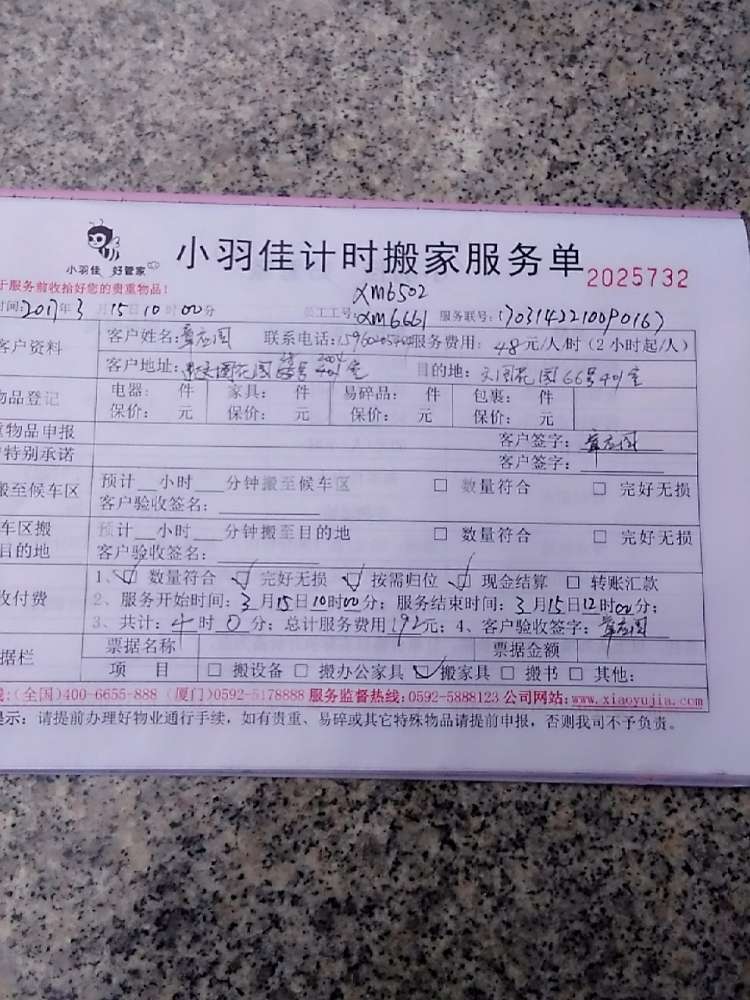 小羽佳计时搬家服务单
小羽佳 好管家
2025732
于服务前收拾好您的贵重物品!
xm6502
时间:2017年3月15日10时00分 员工工号:xm6661 服务联号:170314221009016
客户资料 客户姓名: 联系电话: 服务费用:48元/人/时(2小时起/人)
客户地址: 目的地:文园花园66号401室
物品登记 电器: 件 家具: 件 易碎品: 件 包裹: 件
保价: 元 保价: 元 保价: 元 保价: 元
重物品申报 客户签字:
特别承诺 客户签字:
搬至候车区 预计__小时___分钟搬至候车区 □ 数量符合 □ 完好无损
客户验收签名:
车区搬 预计__小时___分钟搬至目的地 □ 数量符合 □ 完好无损
目的地 客户验收签名:
收付费 1、☑ 数量符合 ☑ 完好无损 ☑ 按需归位 ☑ 现金结算 □ 转账汇款
2、服务开始时间:3月15日10时00分;服务结束时间:3月15日12时00分;
3、共计:4时0分;总计服务费用192元;4、客户验收签字:
据栏 票据名称 票据金额
项 目 □ 搬设备 □ 搬办公家具 ☑ 搬家具 □ 搬书 □ 其他:
线:(全国)400-6655-888 (厦门)0592-5178888 服务监督热线:0592-5888123 公司网站:www.xiaoyujia.com
提示:请提前办理好物业通行手续,如有贵重、易碎或其它特殊物品请提前申报,否则我司不予负责。